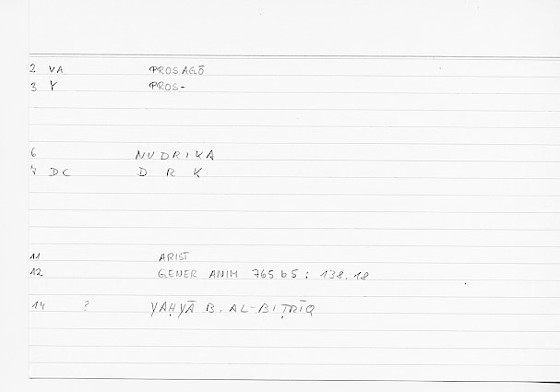 2 VA PROSAGŌ
3 Y PROS-
6 NUDRIKA
7 DC D R K
11 ARIST
12 GENER ANIM 765 b5 ; 138.18
14 ? YAḤYĀ B. AL-BIṬRĪQ